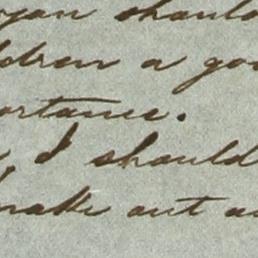 you should
ldren a goo
ortance.
I should
make out a